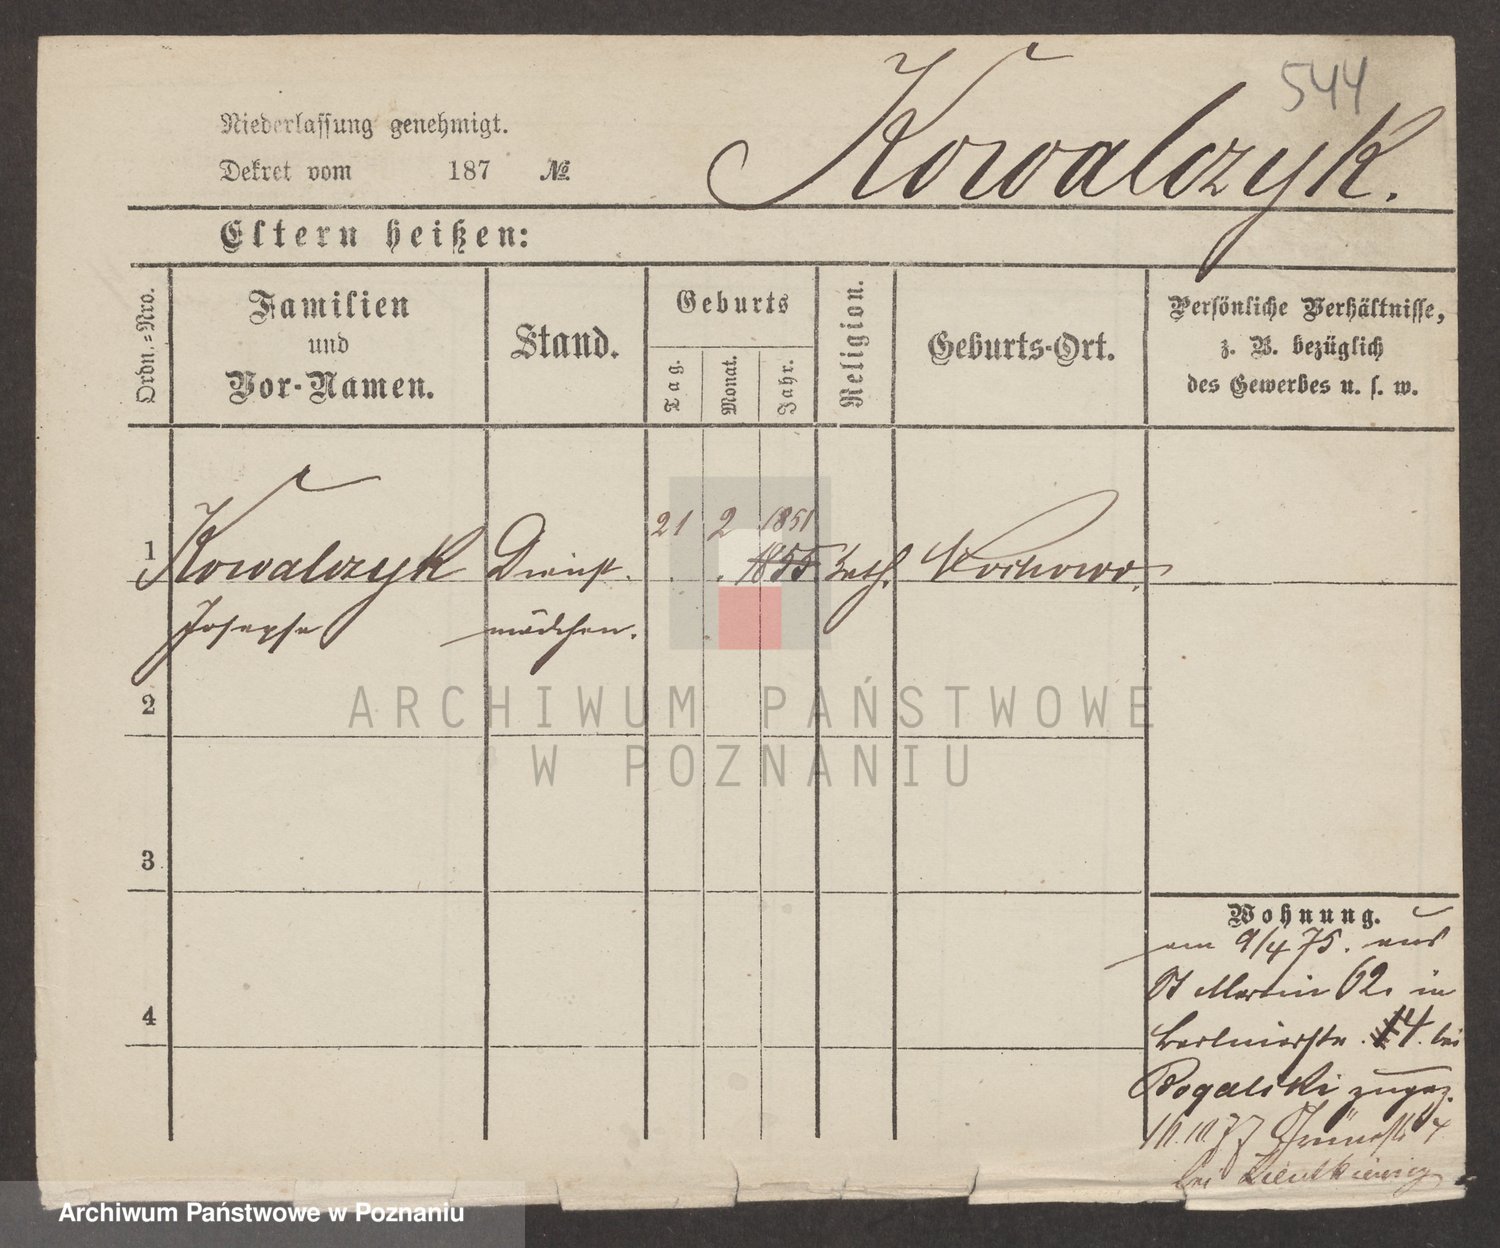 544
Kowalczyk.
Niederlassung genehmigt.
Dekret vom 187 №
Eltern heißen:
Ordn.-Nro.
Familien
und
Vor-Namen.
Stand.
Geburts
Tag.
Monat.
Jahr.
Religion.
Geburts-Ort.
Persönliche Verhältnisse,
z. B. bezüglich
des Gewerbes u. s. w.
1
Kowalczyk
Josepha
Dienst-
mädchen.
21 2 1851
1855
kath.
2
3
4
Wohnung.
am 9/4 75. aus
St Martin 62. in
Berlinerstr. 14. bei
Rogalski zugez.
bei
ARCHIWUM PAŃSTWOWE
W POZNANIU
Archiwum Państwowe w Poznaniu